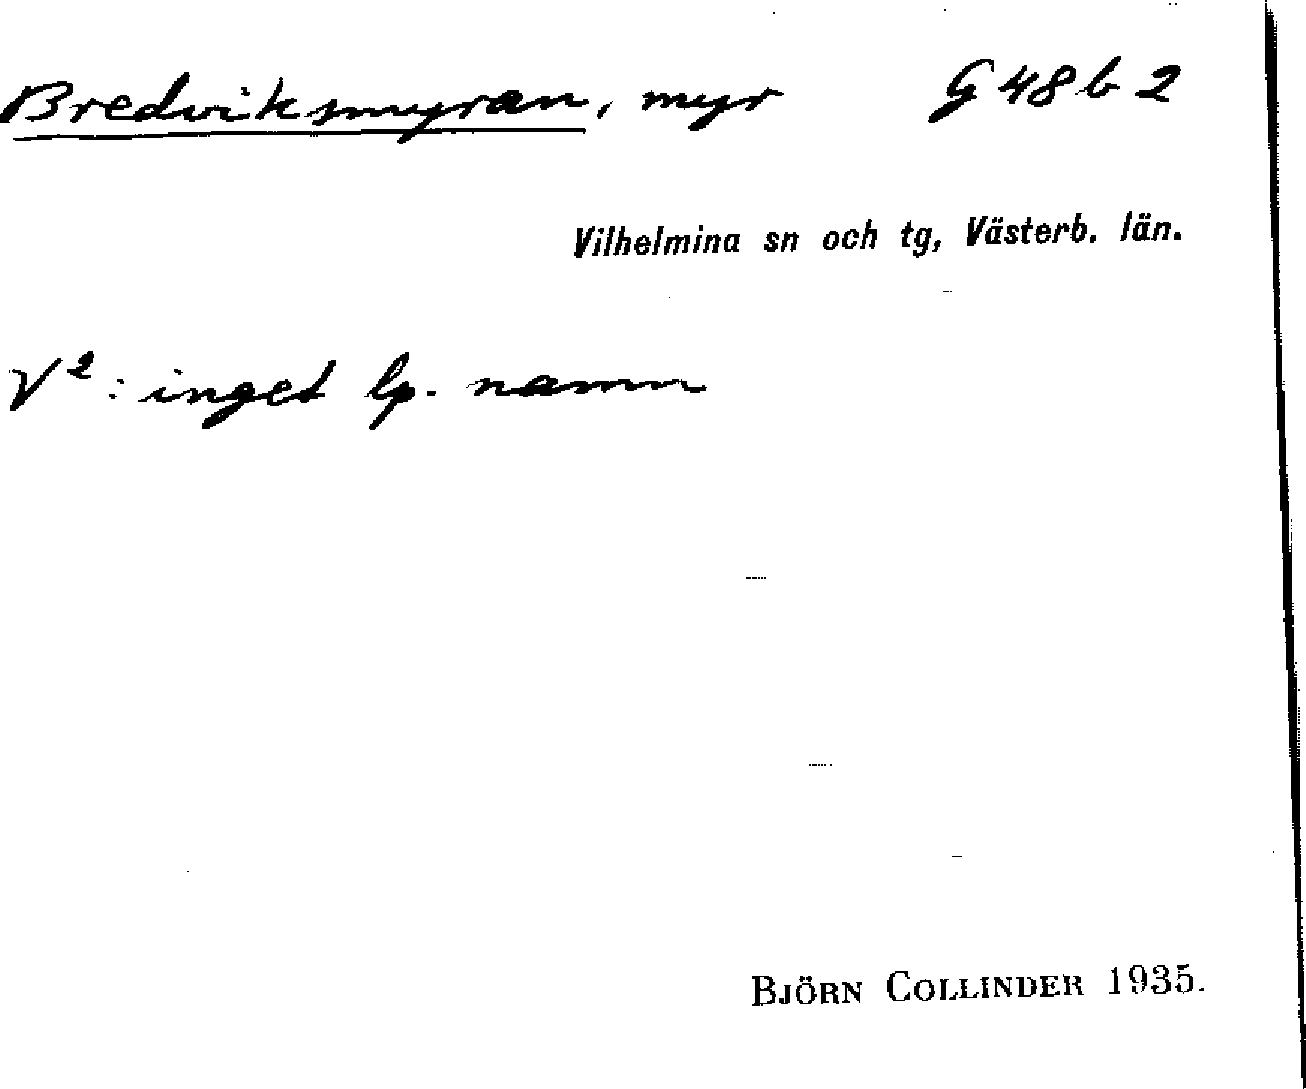 Bredviksmyran, myr G 48 b 2
Vilhelmina sn och tg, Västerb. län.
V²: inget lp. namn
BJÖRN COLLINDER 1935.